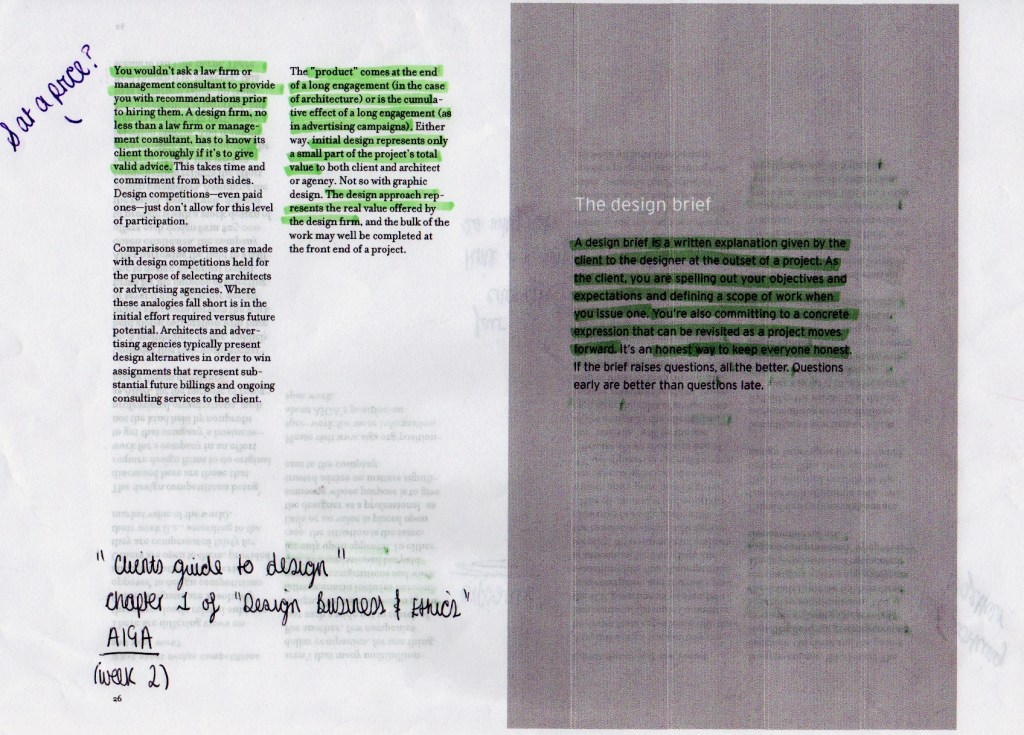 & at a price?
You wouldn't ask a law firm or
management consultant to provide
you with recommendations prior
to hiring them. A design firm, no
less than a law firm or manage-
ment consultant, has to know its
client thoroughly if it's to give
valid advice. This takes time and
commitment from both sides.
Design competitions—even paid
ones—just don't allow for this level
of participation.
Comparisons sometimes are made
with design competitions held for
the purpose of selecting architects
or advertising agencies. Where
these analogies fall short is in the
initial effort required versus future
potential. Architects and adver-
tising agencies typically present
design alternatives in order to win
assignments that represent sub-
stantial future billings and ongoing
consulting services to the client.
The "product" comes at the end
of a long engagement (in the case
of architecture) or is the cumula-
tive effect of a long engagement (as
in advertising campaigns). Either
way, initial design represents only
a small part of the project's total
value to both client and architect
or agency. Not so with graphic
design. The design approach rep-
resents the real value offered by
the design firm, and the bulk of the
work may well be completed at
the front end of a project.
"Clients guide to design"
chapter 1 of "Design Business & Ethics"
AIGA
(week 2)
26
The design brief
A design brief is a written explanation given by the
client to the designer at the outset of a project. As
the client, you are spelling out your objectives and
expectations and defining a scope of work when
you issue one. You're also committing to a concrete
expression that can be revisited as a project moves
forward. It's an honest way to keep everyone honest.
If the brief raises questions, all the better. Questions
early are better than questions late.